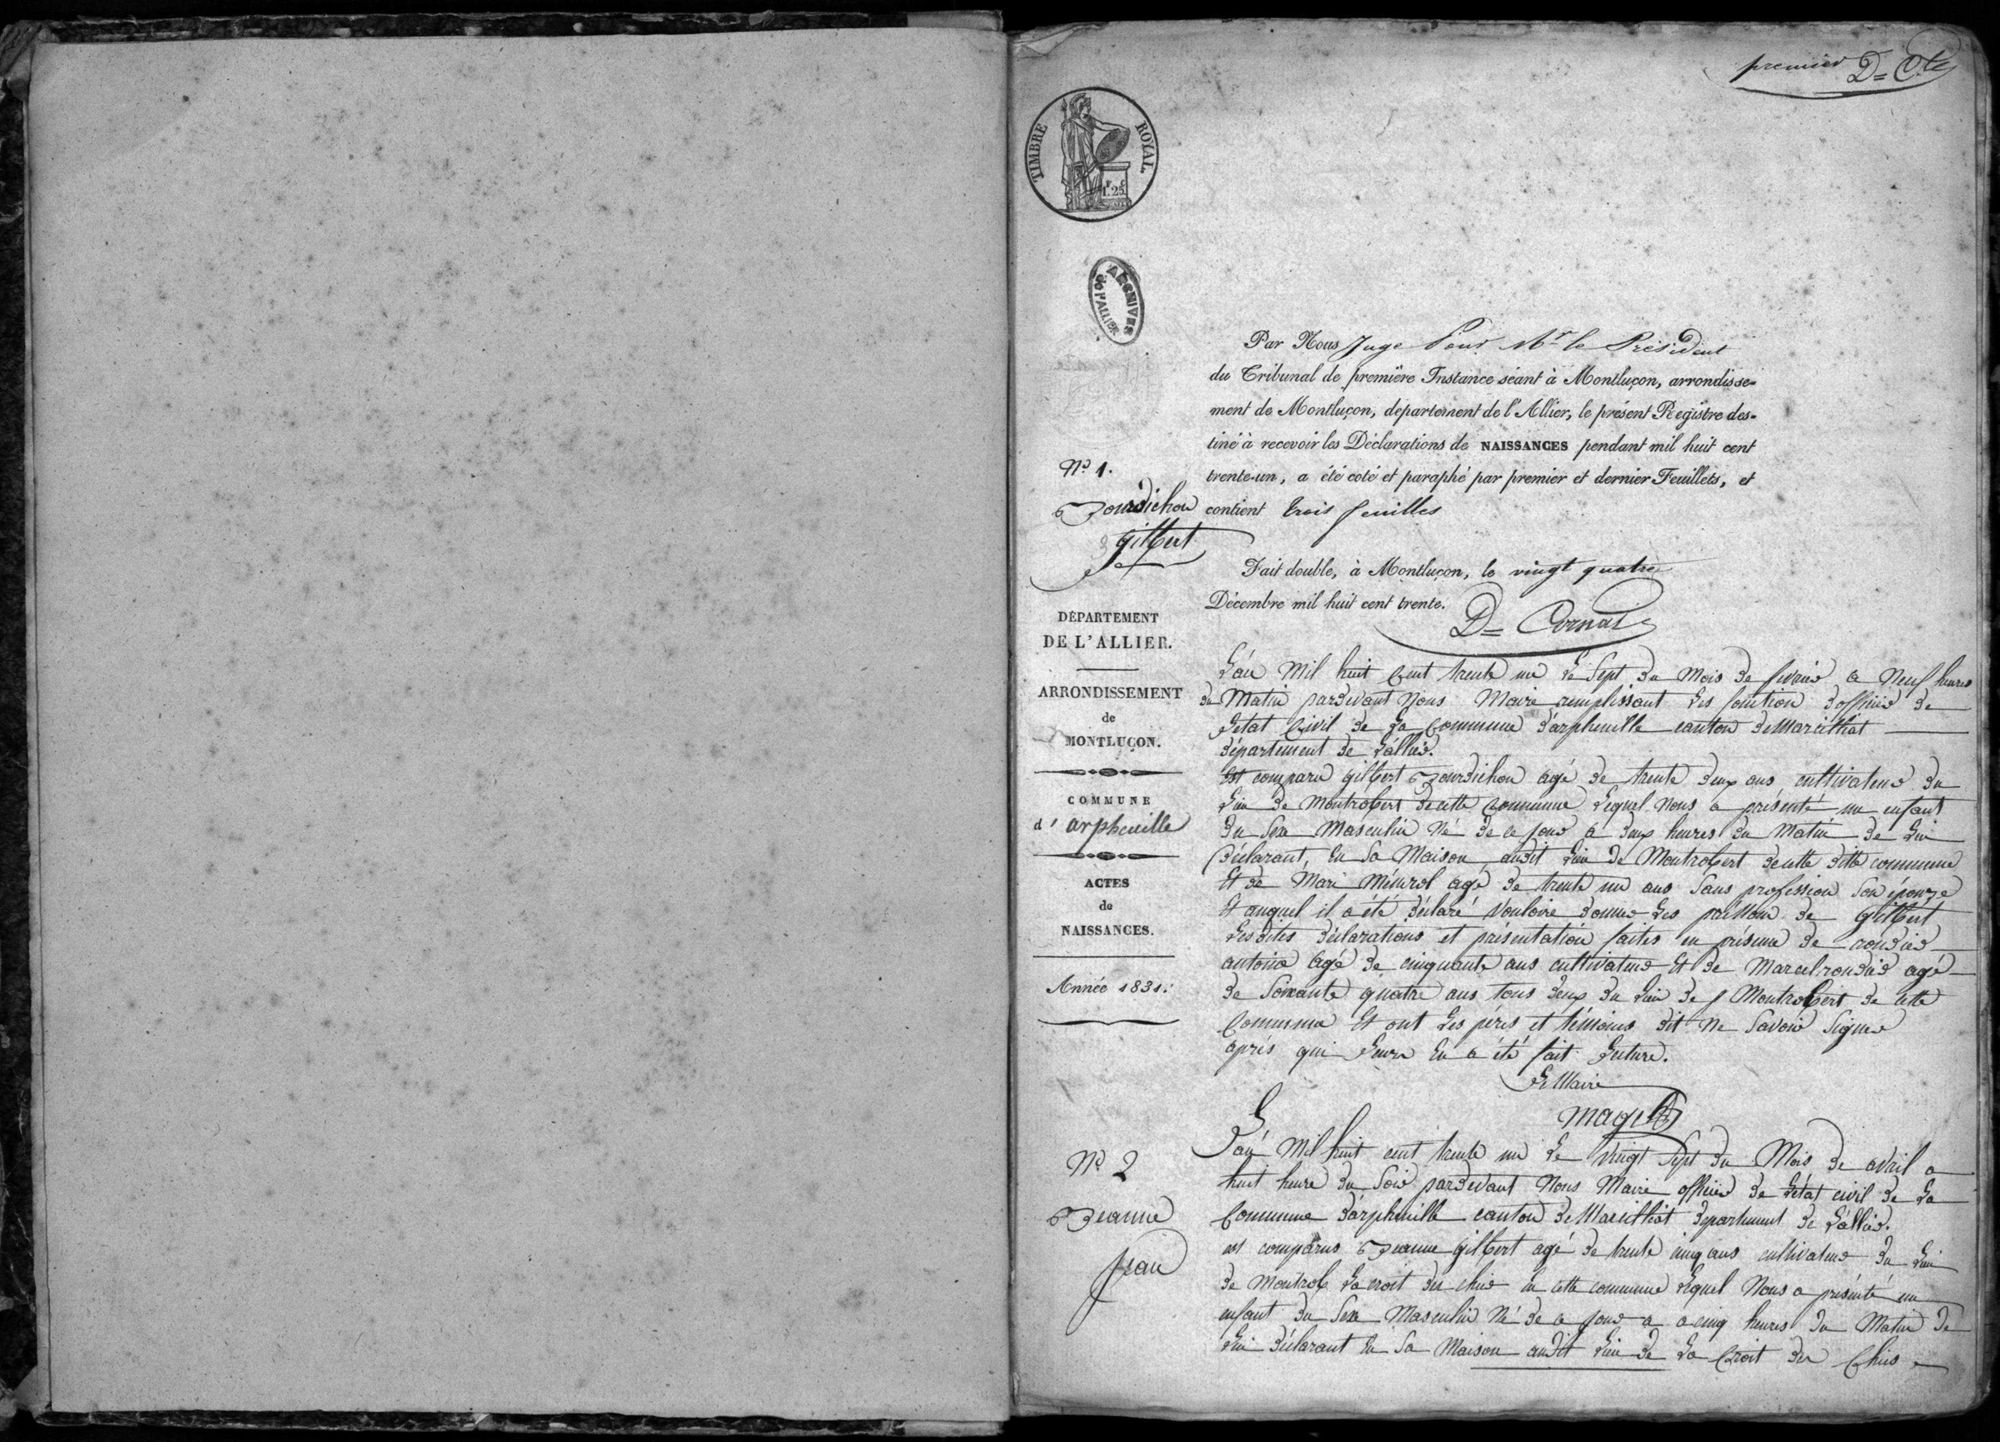 premier D= C.te
TIMBRE ROYAL
1. 25
ARCHIVES
DE L'ALLIER
Par Nous Juge pour Mr le Président
du Tribunal de première Instance séant à Montluçon, arrondisse-
ment de Montluçon, département de l'Allier, le présent Registre des-
tiné à recevoir les Déclarations de NAISSANCES pendant mil huit cent
trente-un, a été coté et paraphé par premier et dernier Feuillets, et
contient trois feuilles
Fait double, à Montluçon, le vingt quatre
Décembre mil huit cent trente.
No 1.
Bourdichon
gilbert
DÉPARTEMENT
DE L'ALLIER.
ARRONDISSEMENT
de
MONTLUÇON.
COMMUNE
d'arpheuille
ACTES
de
NAISSANCES.
Année 1831.
L'an mil huit cent trente un le sept du mois de fevrié a neuf heures
du matin pardevant nous maire remplissant les fonction d'officié de
l'etat civil de la commune d'arpheuille canton de marcilliat
département de l'allié.
Est comparu gilbert Bourdichon agé de trente deux ans cultivateur du
lieu de montrobert de cette commune lequel nous a présenté un enfant
du sexe masculin né de ce jour a deux heures du matin de lui
déclarant, en sa maison audit lieu de montrobert de cette ditte commune
et de mari agé de trente un ans sans profession son épouze
et auquel il a été déclaré vouloire donner les prénom de gilbert
lesdites déclarations et présentation faites en présence de rondié
antoine agé de cinquante ans cultivateur et de marcel rondié agé
de soixante quatre ans tous deux du lieu de montrobert de cette
commune et ont les péres et témoins dit ne savoir signer
aprés qui leure en a été fait lecture.
le Maire
No 2
Bjeanne
jean
L'an mil huit cent trente un le vingt sept du mois de avril a
huit heure du soir pardevant nous maire officié de l'état civil de la
commune d'arpheuille canton de marcilliat departement de l'allié.
est comparus Bjeanne gilbert agé de trente cinq ans cultivateur du lieu
de montrob la croit des chié en cette commune lequel nous a présenté un
enfant du sexe masculin né de ce jour a cinq heures du matin de
lui déclarant en sa maison audit lieu de la croit des chiés